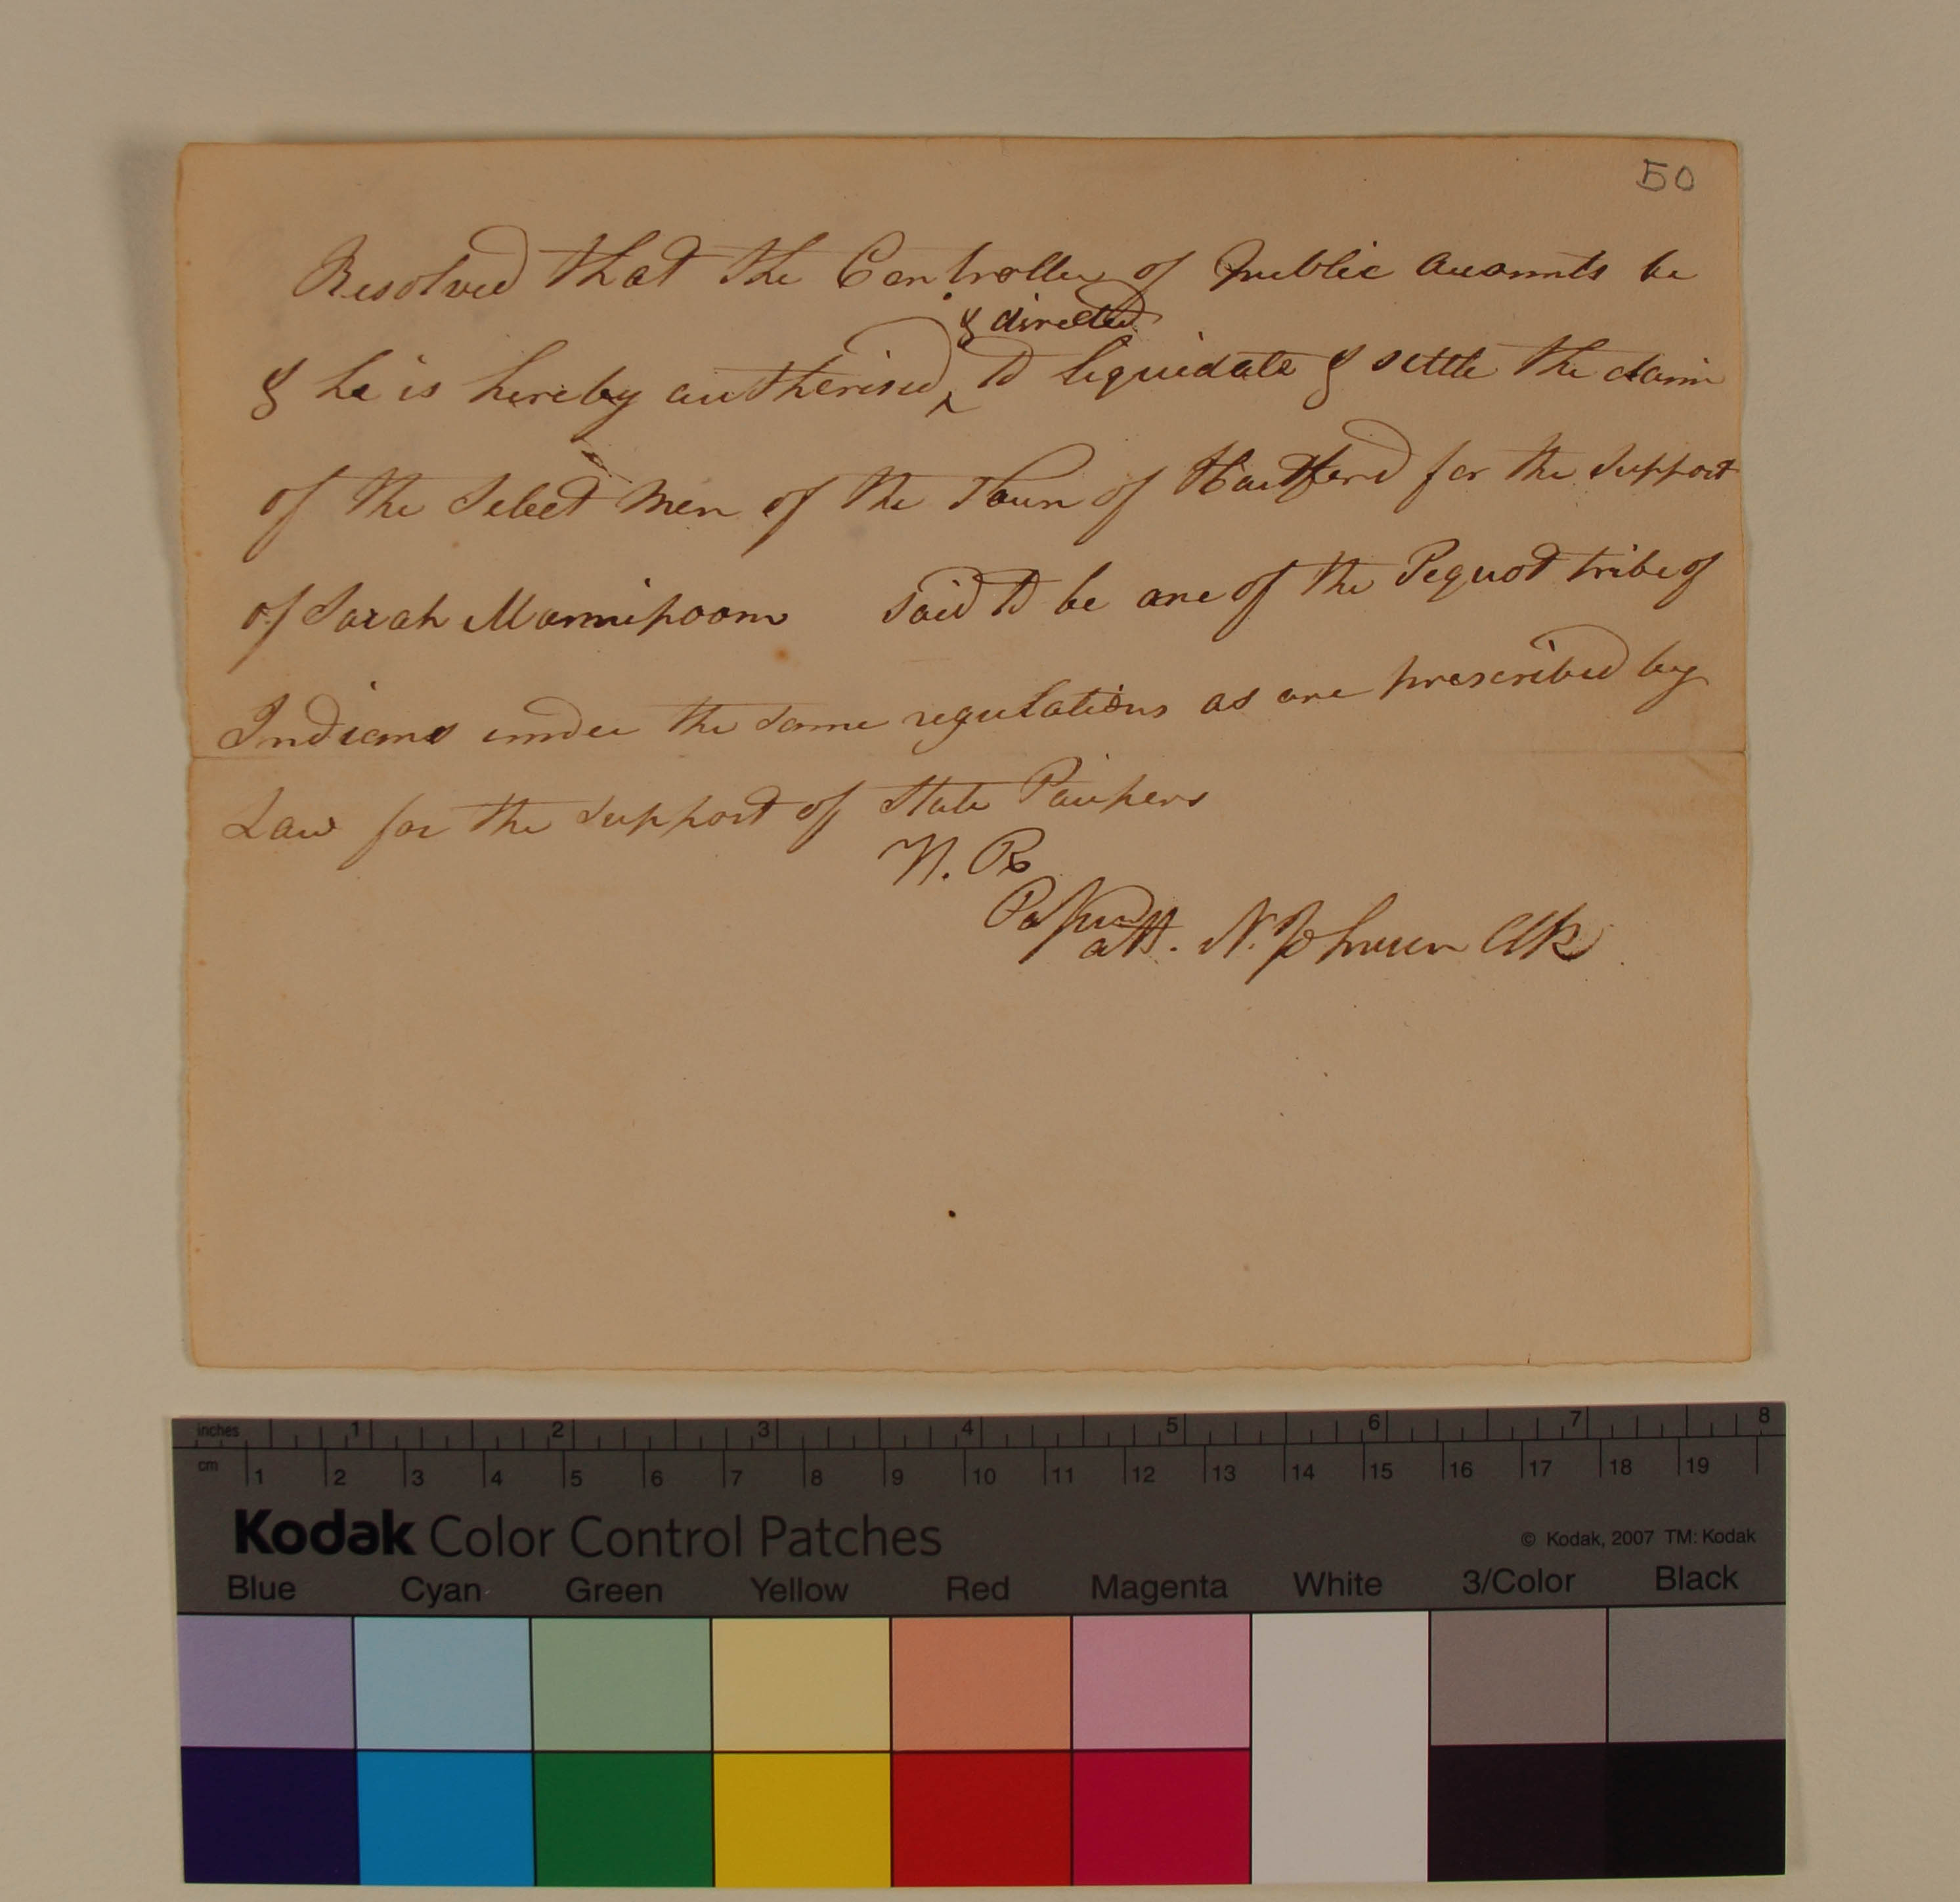 50
Resolved that the Controller of Public Accounts be
& directed
& he is hereby autherised ‸ to liquidate & settle the claim
of the Select Men of the Town of Hartford for the Support
of Sarah Mannipoom said to be one of the Pequot tribe of
Indians under the same regulations as are prescribed by
Law for the support of State Paupers
H. R
Passed
att. N. Johnson Clk
inches 1 2 3 4 5 6 7 8
cm 1 2 3 4 5 6 7 8 9 10 11 12 13 14 15 16 17 18 19
Kodak Color Control Patches © Kodak, 2007 TM: Kodak
Blue Cyan Green Yellow Red Magenta White 3/Color Black